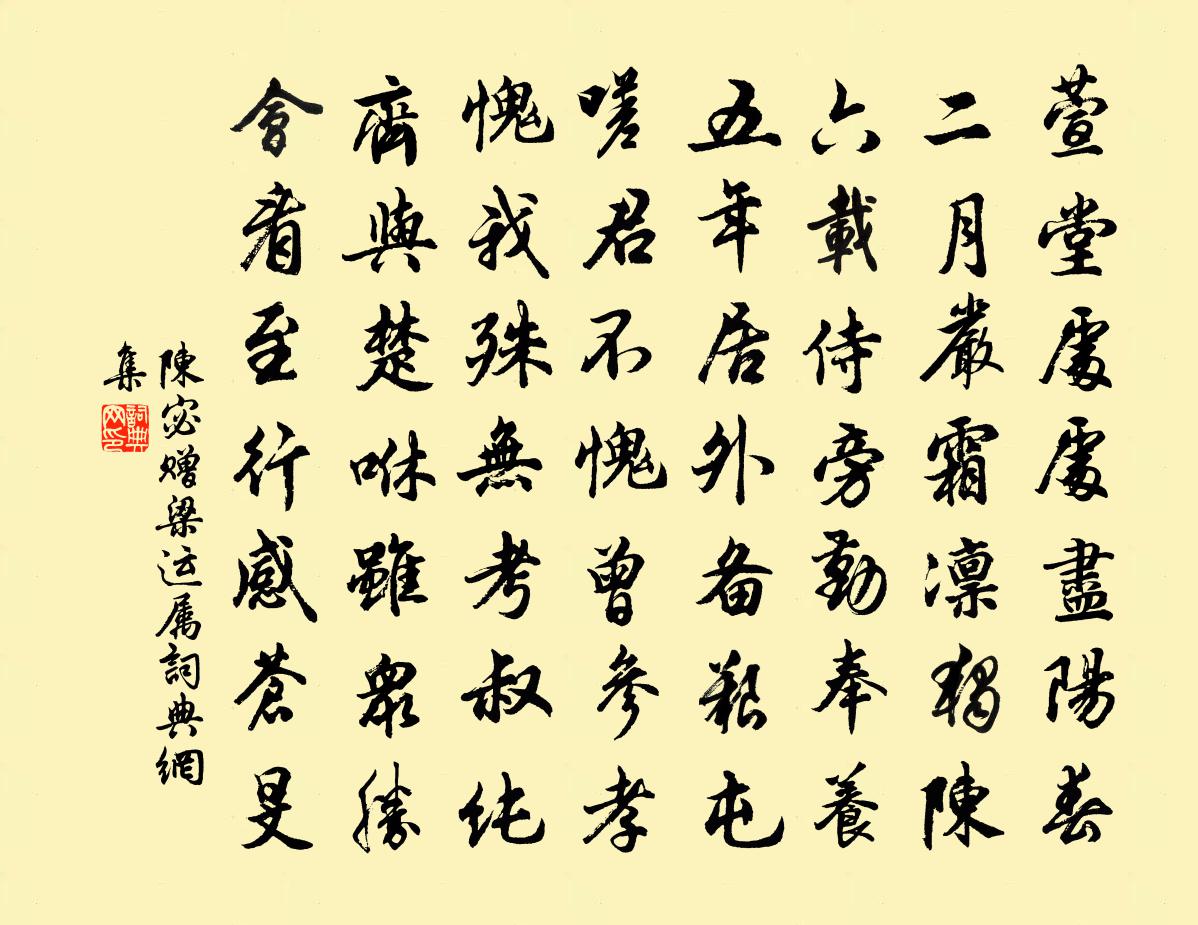 萱堂處處盡陽春
二月嚴霜凛獨陳
六載侍旁勤奉養
五年居外备艱屯
嗟君不愧曾參孝
愧我殊無考叔纯
齊與楚咻雖眾勝
會看至行感蒼旻
陳宓赠梁运属詞典網
集
詞典网印